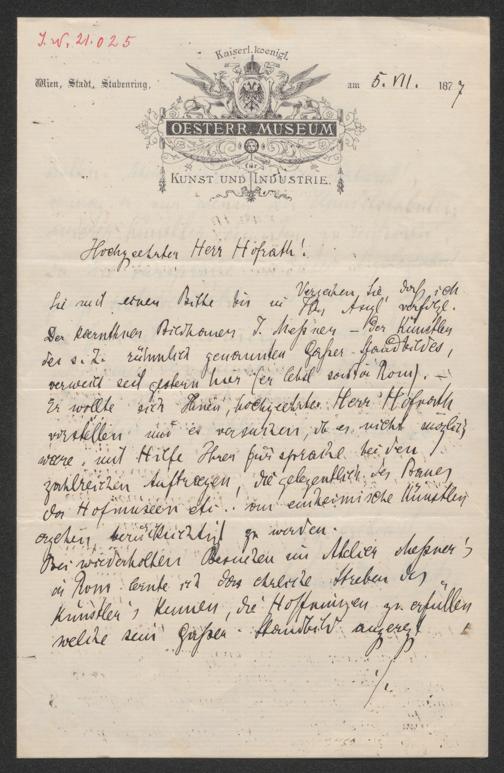 I.N. 21.025
Kaiserl. koenigl.
Wien, Stadt, Stubenring, am 5. VII. 1877
OESTERR. MUSEUM
FÜR
KUNST UND INDUSTRIE.
Hochgeehrter Herr Hofrath!
Verzeihen Sie, daß ich
Sie mit einer Bitte bis in Ihr Asyl verfolge.
Der Kärntner Bildhauer J. Meßner – der Künstler
des s. Z. rühmlich genannten Gaßer-Standbildes,
verweilt seit gestern hier (er lebt sonst in Rom). –
Er wollte sich Ihnen, hochgeehrter Herr Hofrath
vorstellen und es versuchen, ob es nicht möglich
waere, mit Hilfe Ihrer Fürsprache bei den
zahlreichen Aufträgen, die gelegentlich des Baues
der Hofmuseen etc. an einheimische Künstler
ergehen, berücksichtigt zu werden.
Bei wiederholten Besuchen im Atelier Meßner's
in Rom lernte ich das ehrliche Streben des
Künstler's kennen, die Hoffnungen zu erfüllen
welche sein Gaßer-Standbild angeregt